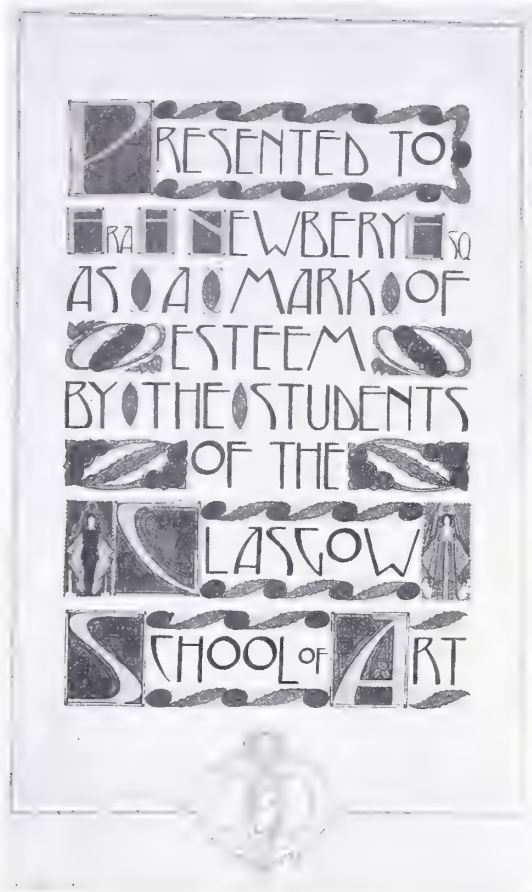 PRESENTED TO
FRA H NEWBERY ESQ
AS A MARK OF
ESTEEM
BY THE STUDENTS
OF THE
GLASGOW
SCHOOL OF ART